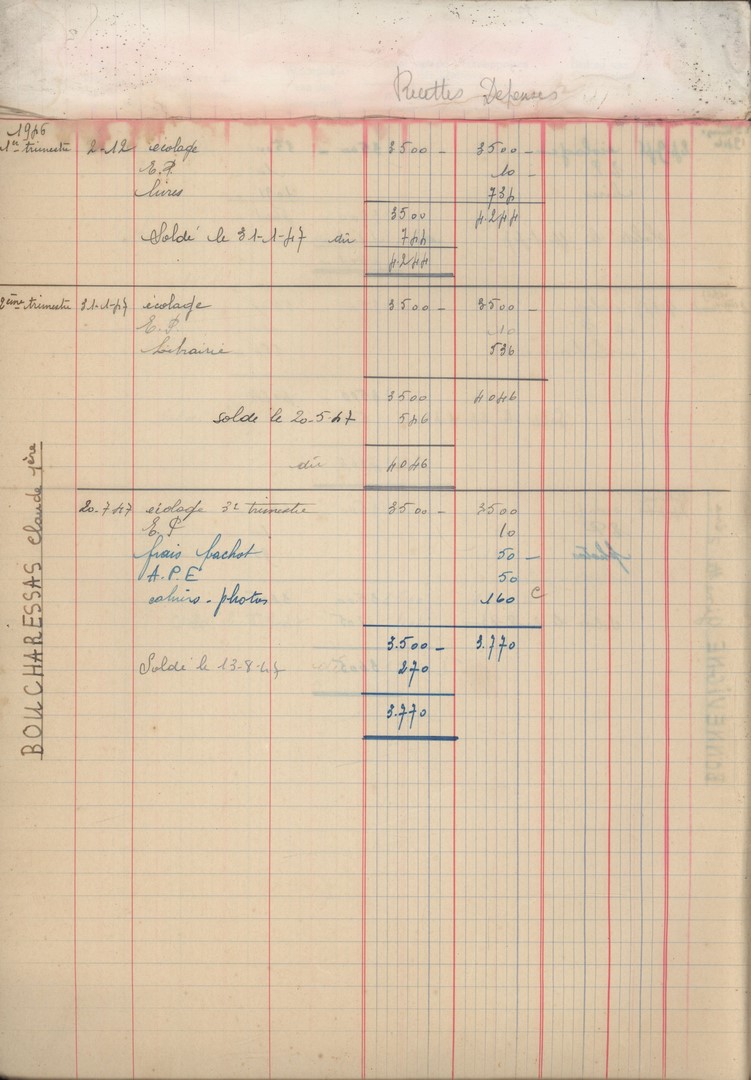 Recettes Depenses
1946
1er trimestre 2-12 écolage 3500 - 3500 -
E.P 10 -
livres 734
3500 4.244
Soldé le 31-1-47 dû 744
4.244
2ème trimestre 31-1-47 écolage 3500 - 3500 -
E.P. 10
Librairie 536
3500 4046
solde le 20-5-47 546
dû 4046
20.7.47 écolage 3e trimestre 3500 - 3500
E.P 10
frais bachot 50 -
A.P.E 50
cahiers - photos 160 C
3.500 - 3.770
Soldé le 13-8-47 270
3.770
BOUCHARESSAS Claude 1ère